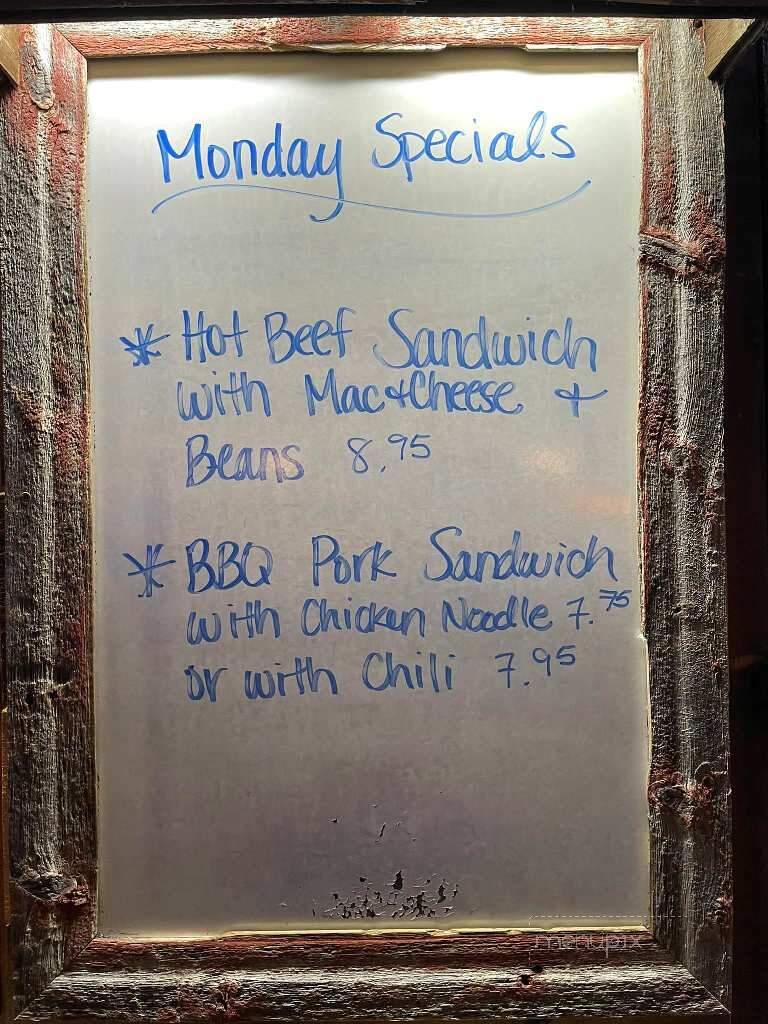 Monday Specials
* Hot Beef Sandwich
with Mac+Cheese +
Beans 8.95
* BBQ Pork Sandwich
with Chicken Noodle 7.75
or with Chili 7.95
menupix